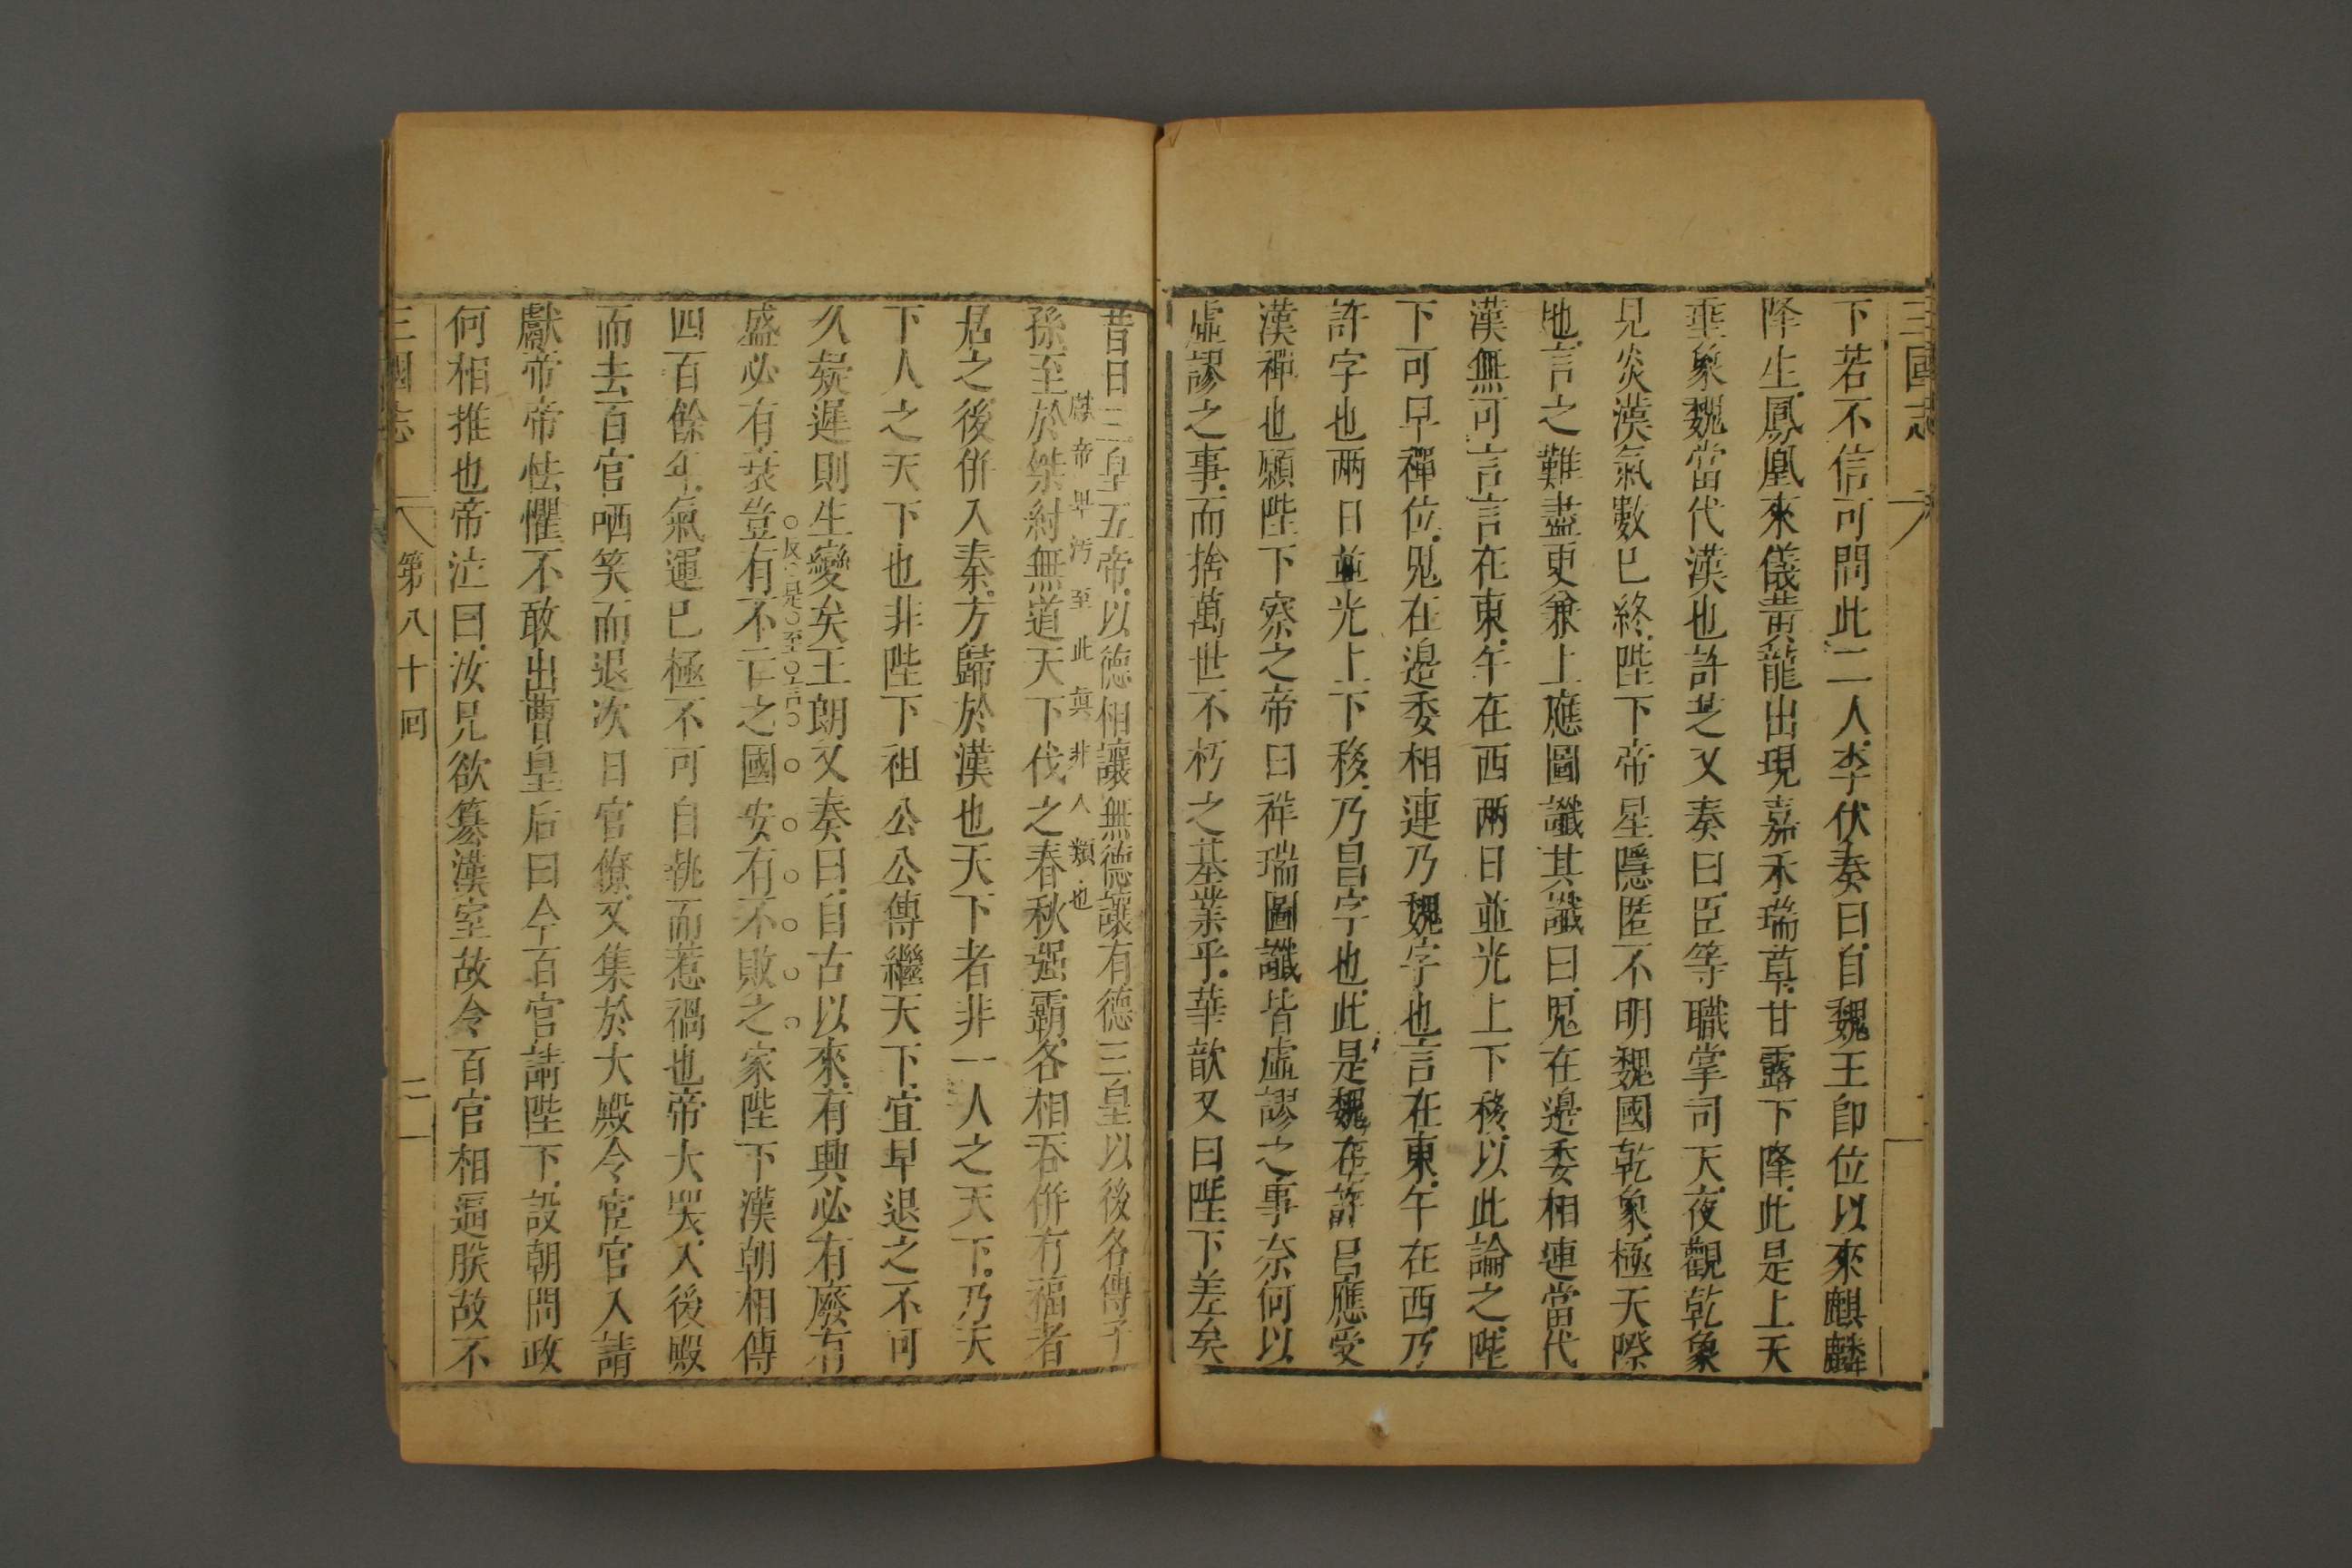 三國志
下若不信可問此二人李伏奏曰自魏王卽位以來麒麟
降生鳳凰來儀黃龍出現嘉禾瑞草甘露下降此是上天
垂象魏當代漢也許芝又奏曰臣等職掌司天夜觀乾象
見炎漢氣數已終陛下帝星隱匿不明魏國乾象極天際
地言之難盡更兼上應圖讖其讖曰鬼在邊委相連當代
漢無可言言在東午在西兩日並光上下移以此論之陛
下可早禪位鬼在邊委相連乃魏字也言在東午在西乃
許字也兩日並光上下移乃昌字也此是魏在許昌應受
漢禪也願陛下察之帝曰祥瑞圖讖皆虛謬之事奈何以
虛謬之事而捨萬世不朽之基業乎華歆又曰陛下差矣
昔日三皇五帝以德相讓無德讓有德三皇以後各傳子
獻帝卑汚至此眞非人類也
孫至於桀紂無道天下伐之春秋强霸各相吞併有福者
居之後併入秦方歸於漢也天下者非一人之天下乃天
下人之天下也非陛下祖公公傳繼天下宜早退之不可
久疑遲則生變矣王朗又奏曰自古以來有興必有廢有
反是至言
盛必有衰豈有不亡之國安有不敗之家陛下漢朝相傳
四百餘年氣運已極不可自執而惹禍也帝大哭入後殿
而去百官哂笑而退次日官僚又集於大殿令宦官入請
獻帝帝怯懼不敢出曹皇后曰今百官請陛下設朝問政
何相推也帝泣曰汝兄欲篡漢室故令百官相逼朕故不
三國志 第八十回 二